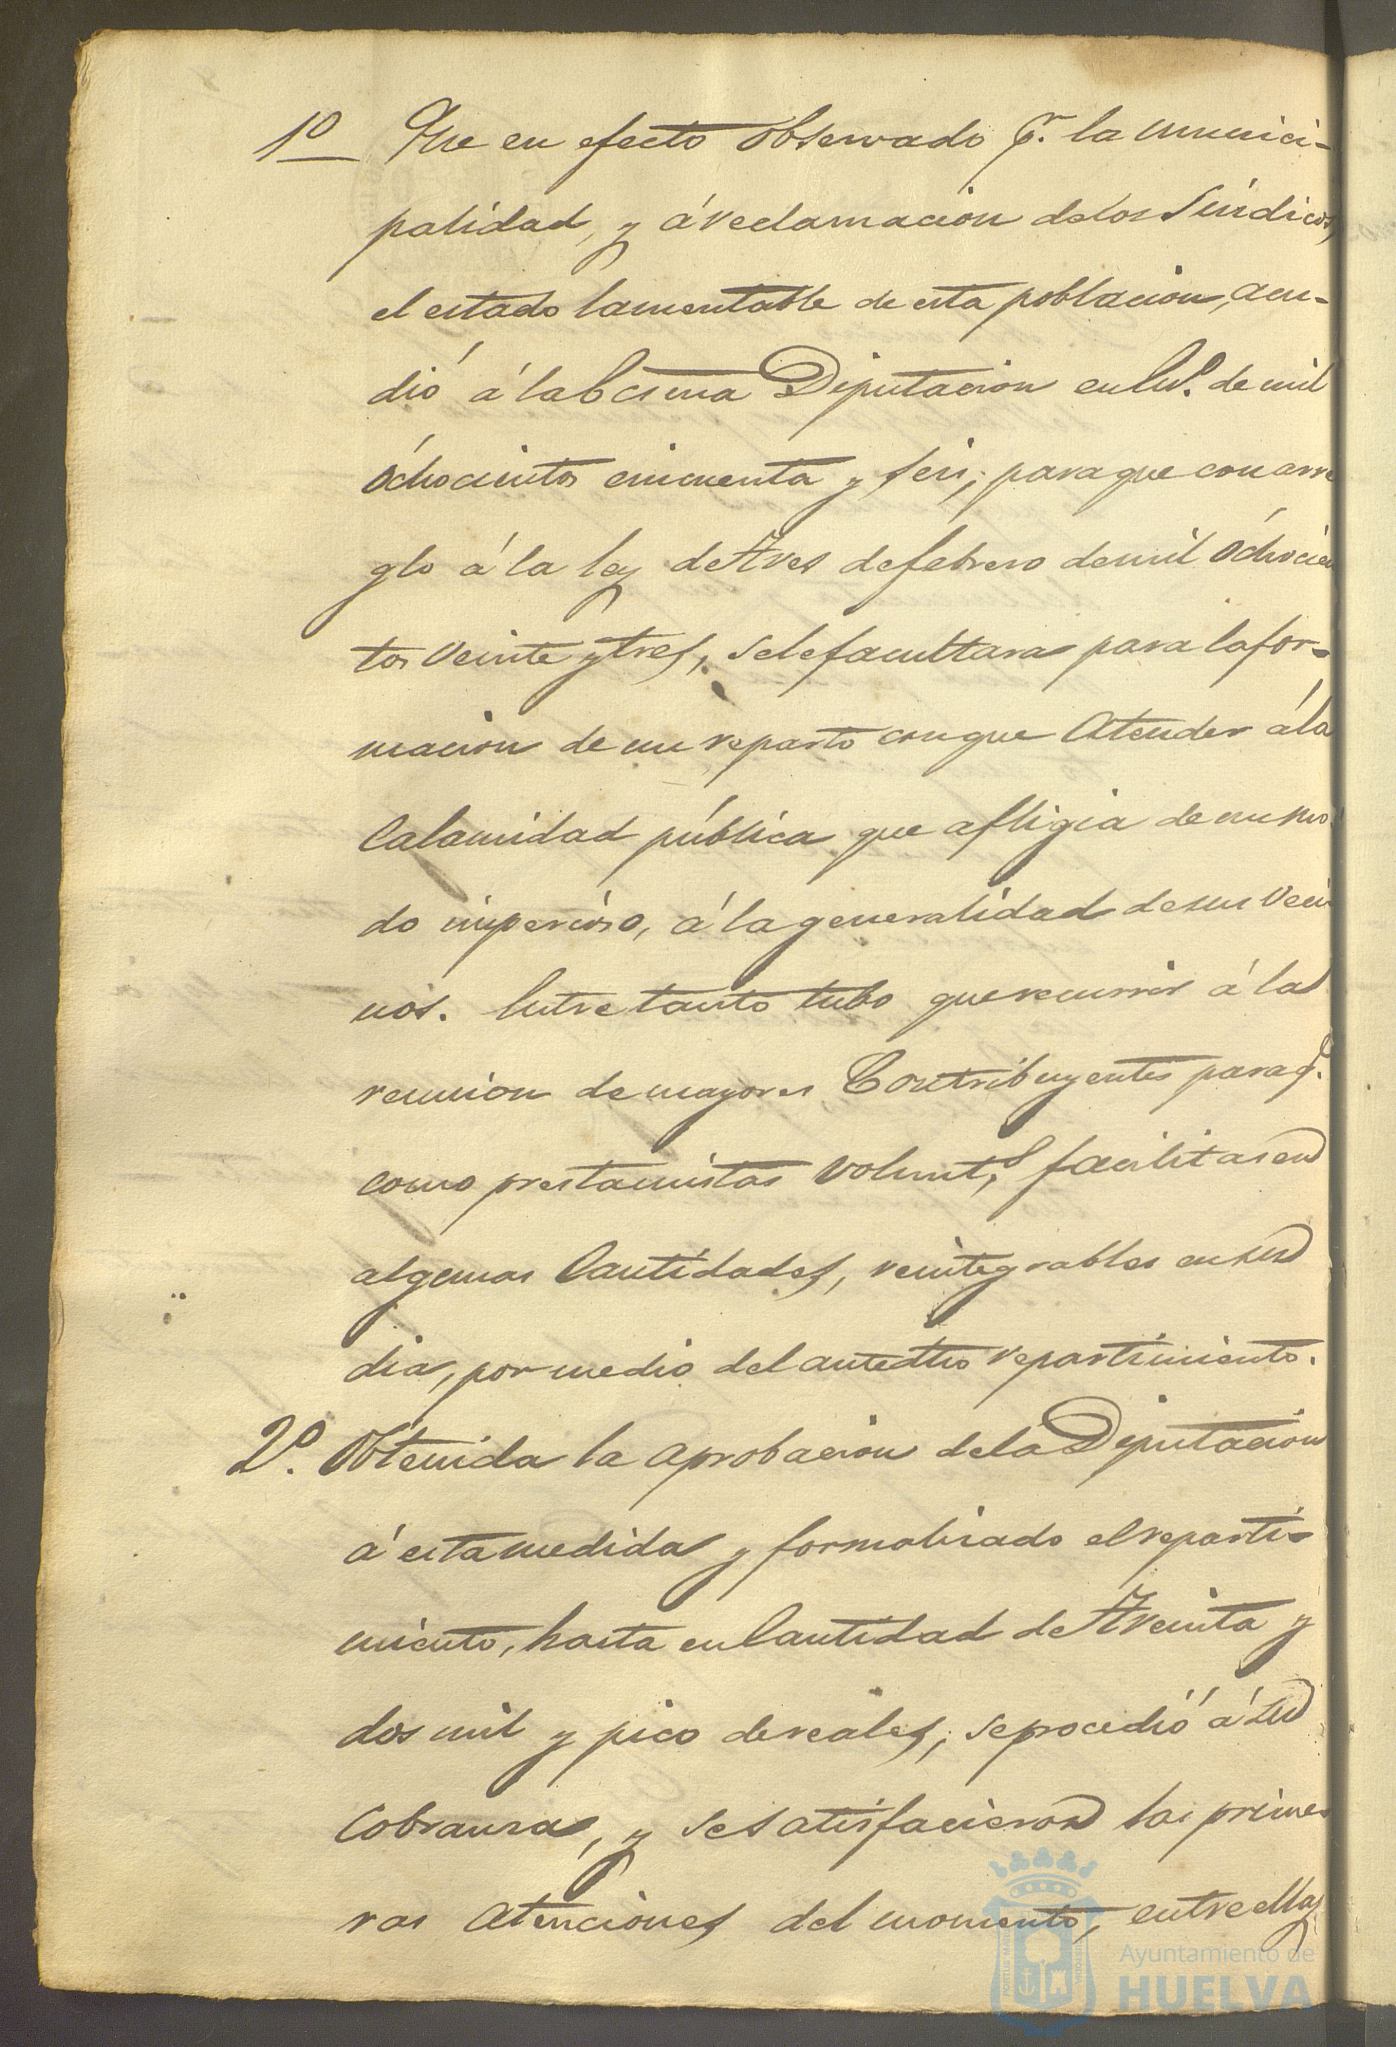 1º Que en efecto observado pr. la munici-
palidad, y á reclamacion delos Síndicos,
el estado lamentable de esta poblacion, acu-
dió á la Ecsma Diputacion en Enº. de mil
óchocientos cincuenta y seis; para que con arre
glo á la ley de tres de febrero de mil óchocien
tos veinte y tres, se le facultara para la for-
macion de un reparto con que atender á la
Calamidad pública que afligia de un mo-
do imperioso, á la generalidad de sus veci
nos. Entre tanto tubo que recurrir á la
reunion de mayores Contribuyentes para q.e
como prestamistas volunt.s facilitasen
algunas Cantidades, reintegrables en su
dia, por medio del antedho repartimiento.
2º. Obtenida la aprobacion dela Diputacion
á esta medida y formalizado el reparti-
miento, hasta en Cantidad de treinta y
dos mil y pico de reales, se procedió á su
Cobranza, y se satisfacieron las prime
ras atenciones del momento, entre ellas
Ayuntamiento de
HUELVA